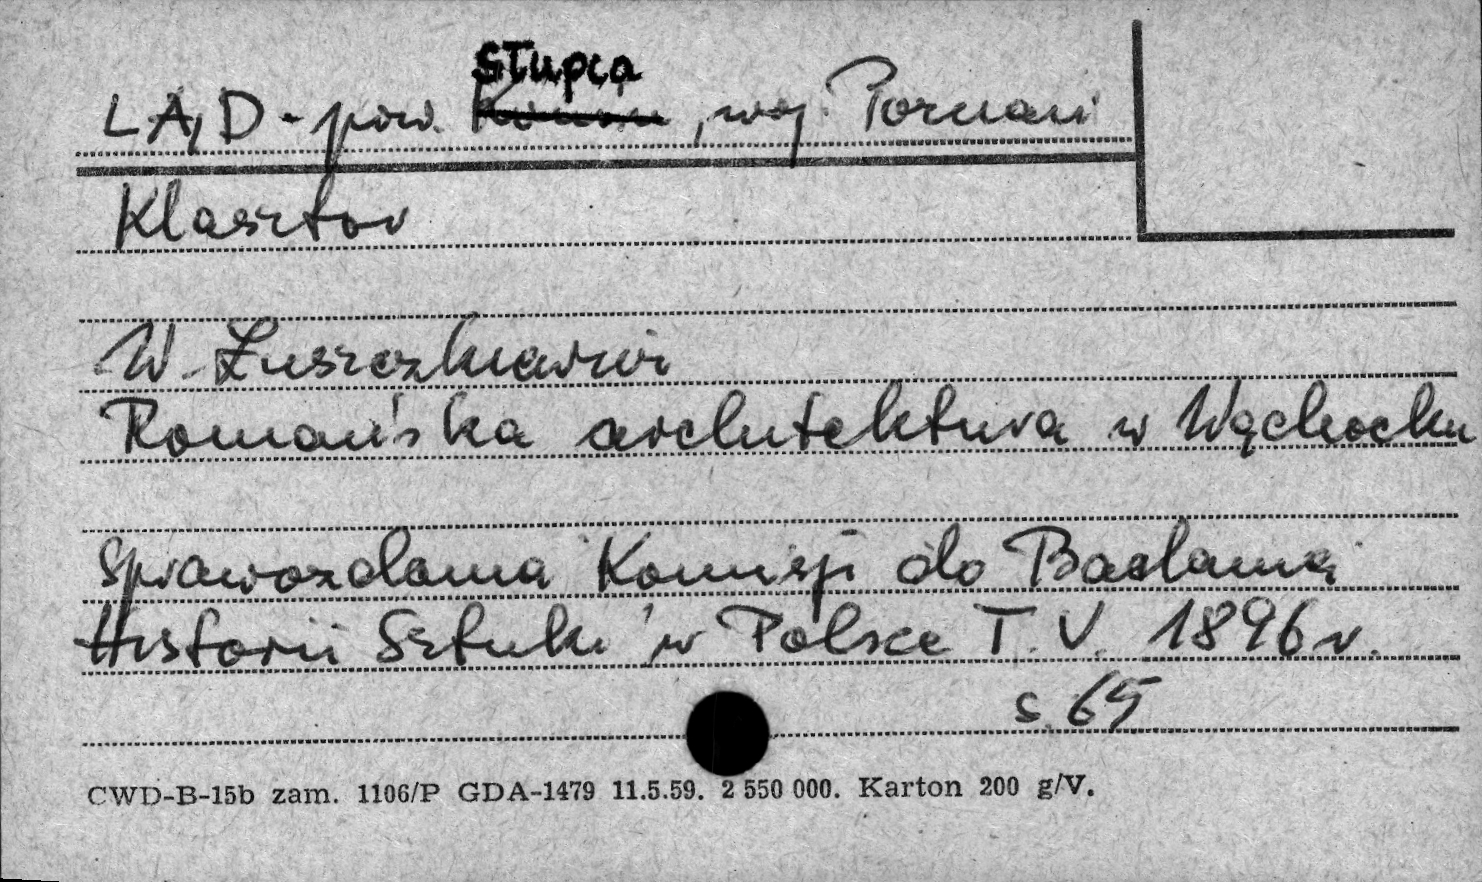 Słupca
LĄD - pow. Konin, woj. Poznań
Klasztor
W. Łuszczkiewicz
Romańska architektura w Wąchocku
Sprawozdania Komisji do Badania
Historii Sztuki w Polsce T. V. 1896 r.
s. 65
CWD-B-15b zam. 1106/P GDA-1479 11.5.59. 2 550 000. Karton 200 g/V.